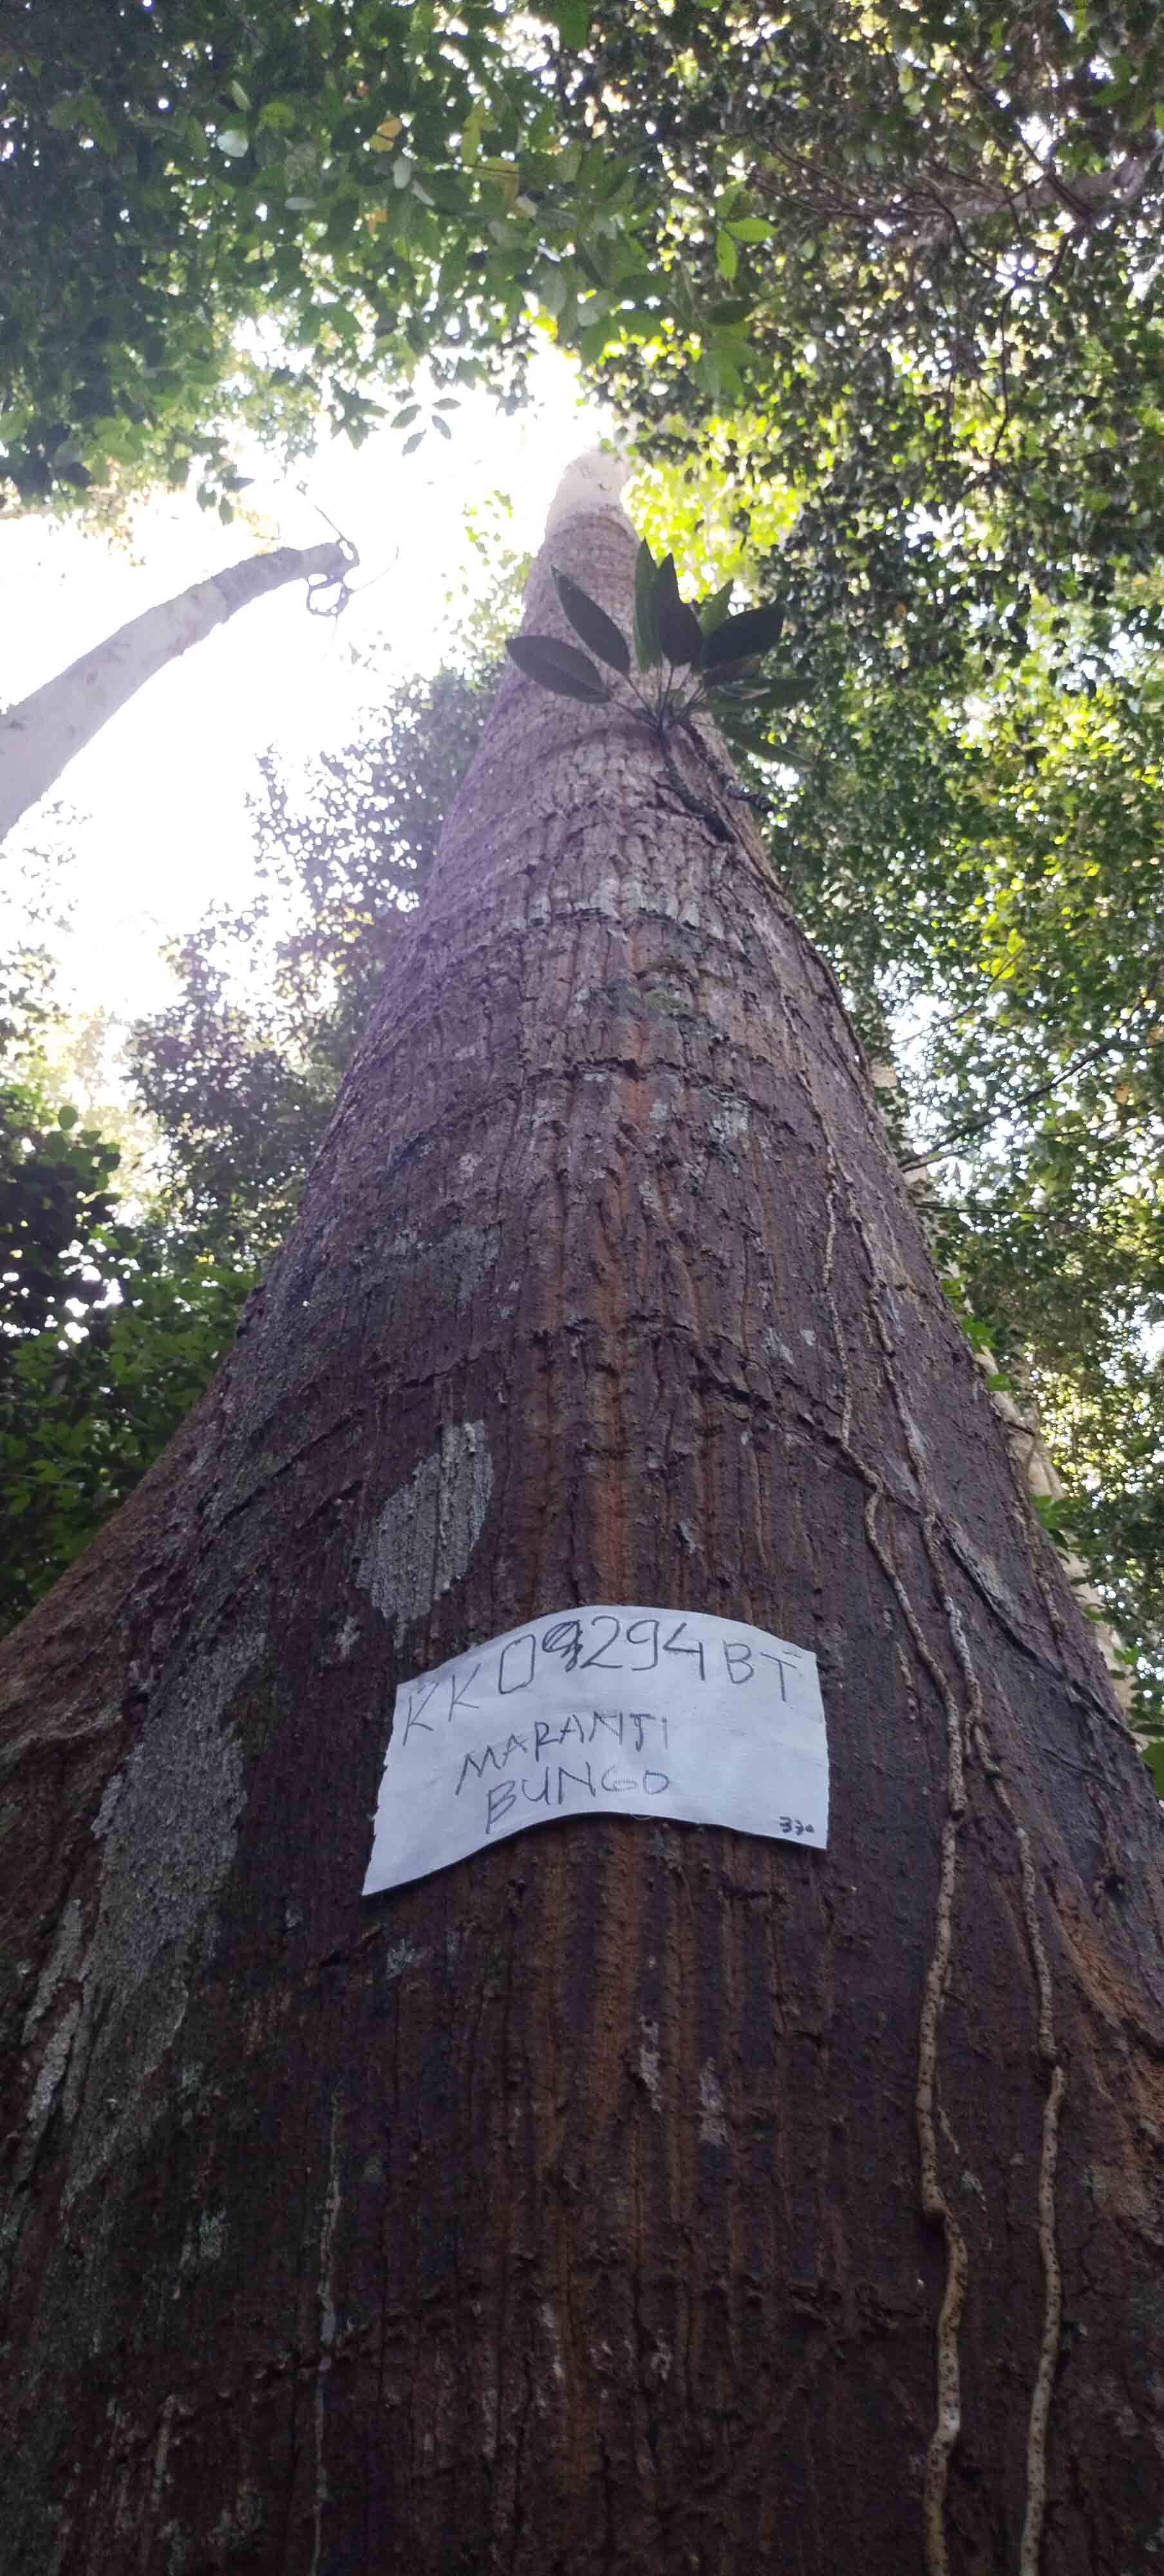 KK09294BT
MARANTI
BUNGO
330